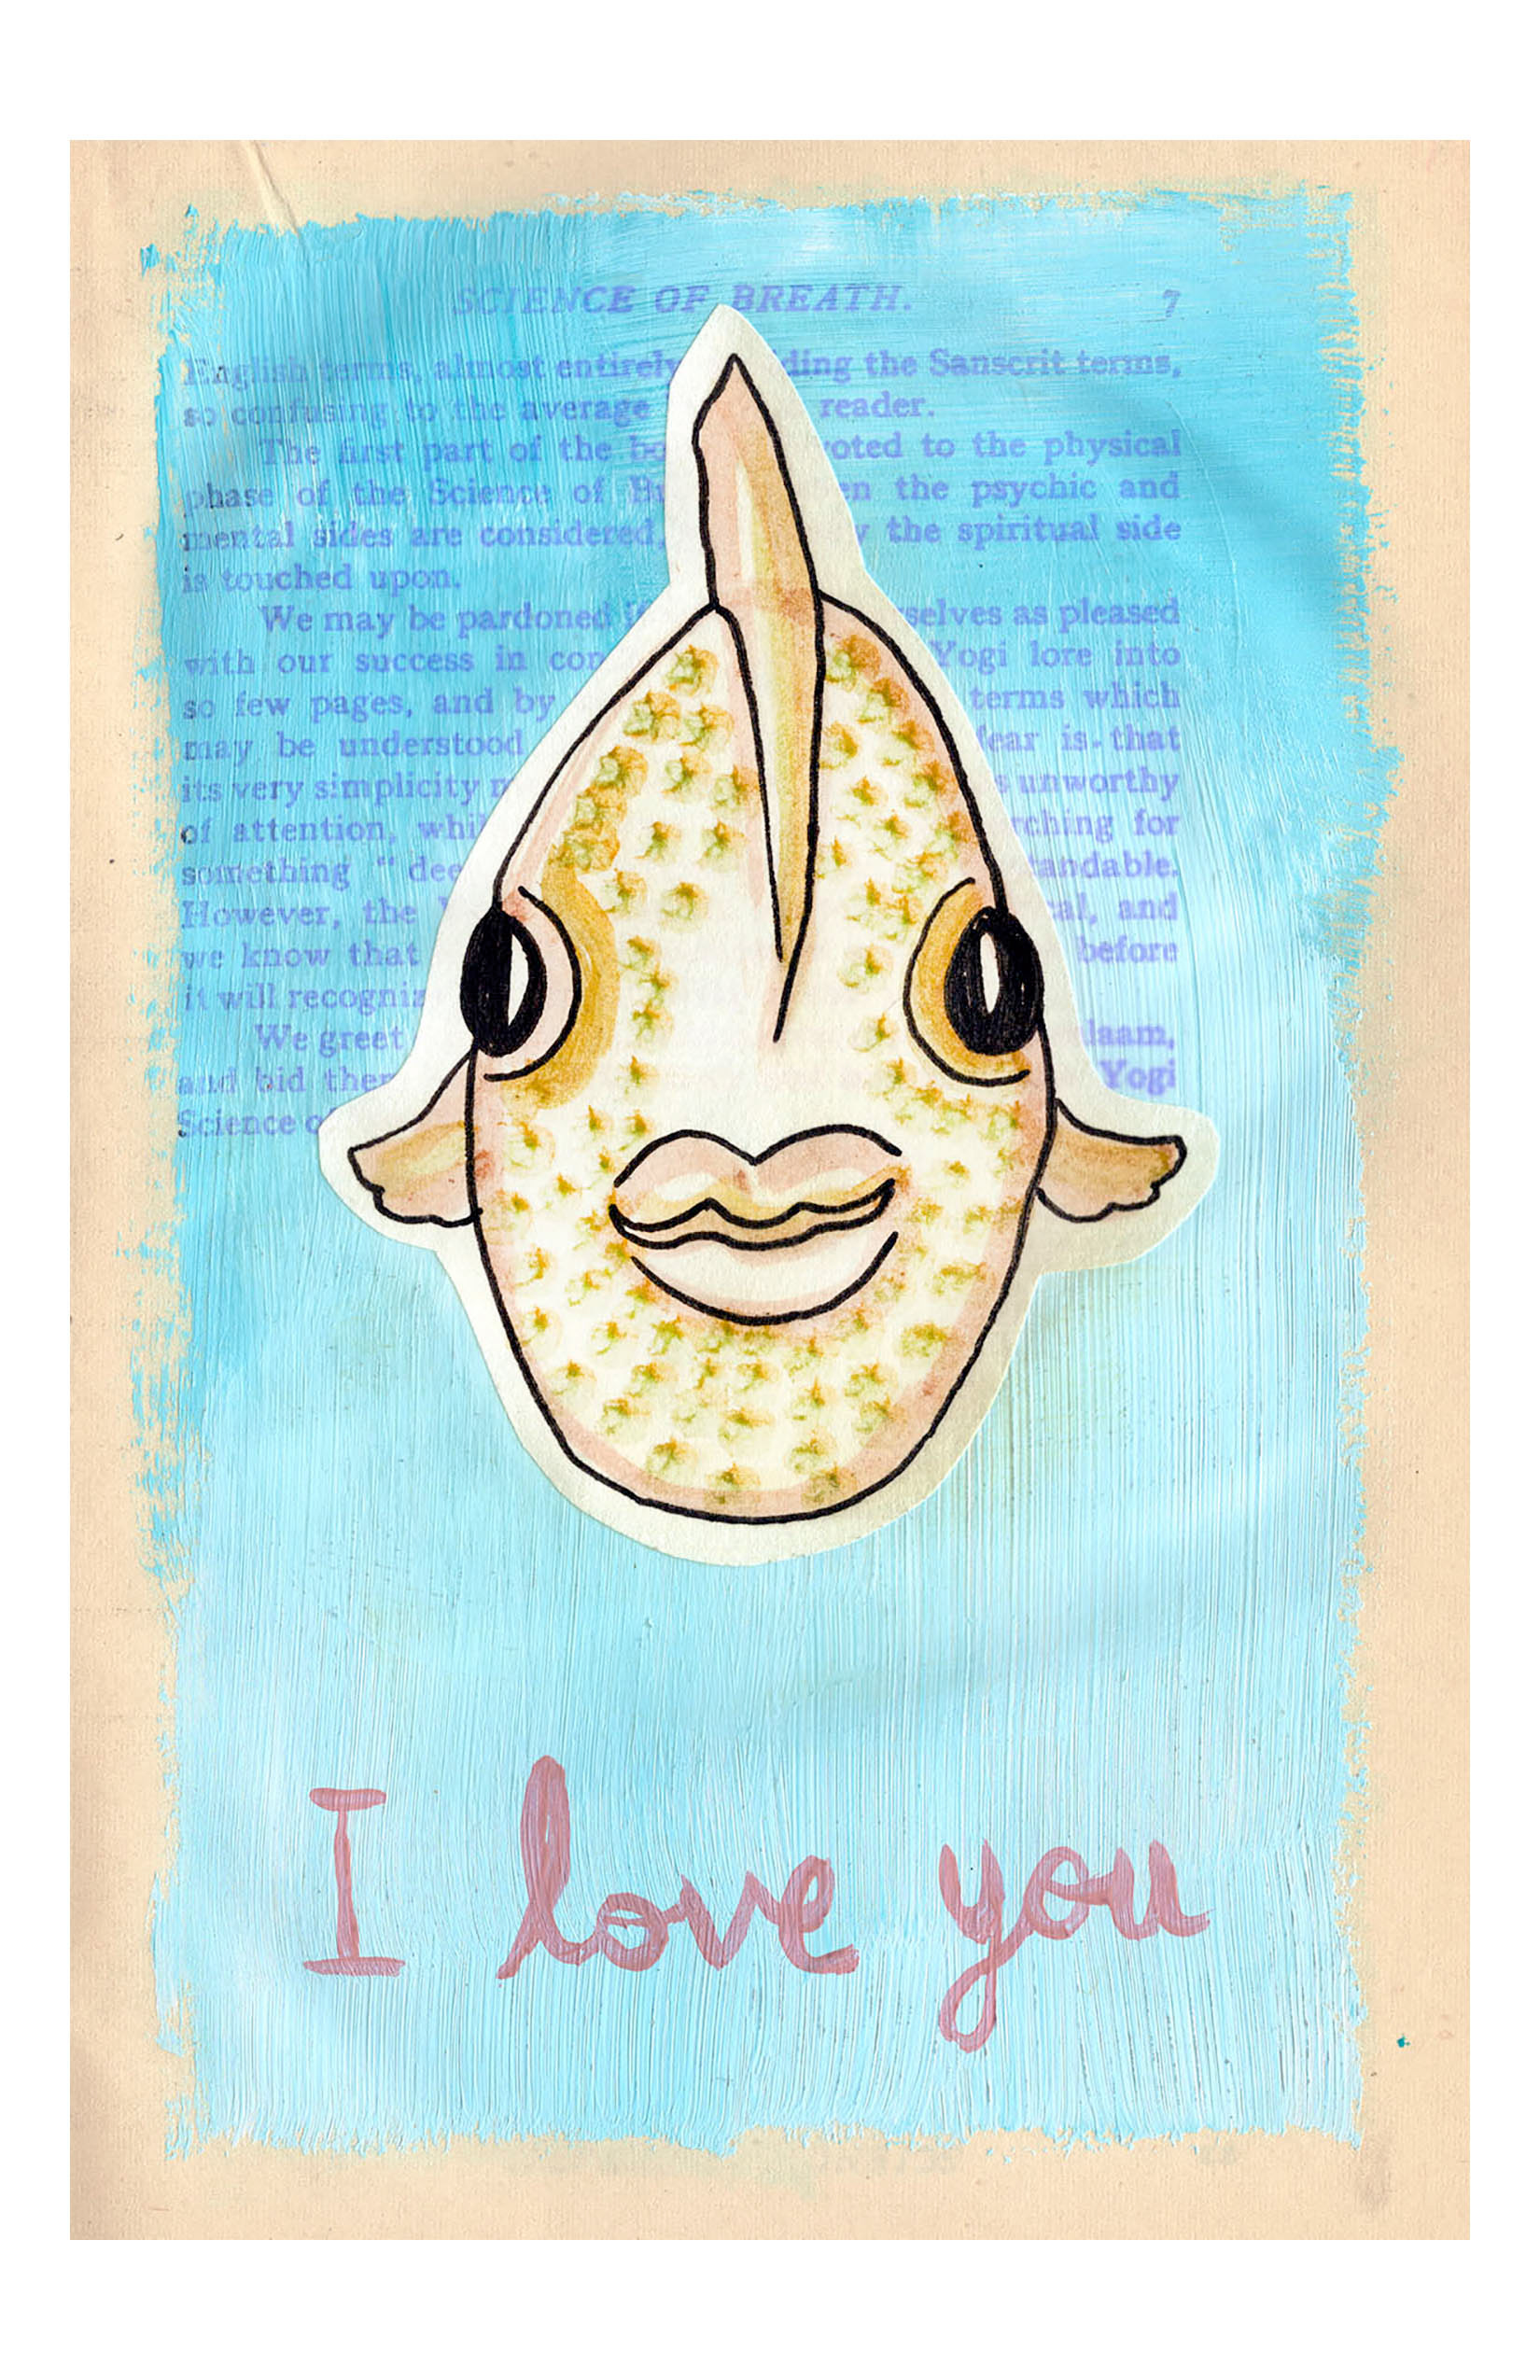 SCIENCE OF BREATH. 7
English terms, almost entirely ding the Sanscrit terms,
so confusing to the average reader.
The first part of the bo voted to the physical
phase of the Science of Br en the psychic and
mental sides are considered, y the spiritual side
is touched upon.
We may be pardoned if rselves as pleased
with our success in con Yogi lore into
so few pages, and by terms which
may be understood fear is that
its very simplicity unworthy
of attention, whi rching for
something "dee tandable.
However, the cal, and
we know that before
it will recogniz
We greet laam,
and bid ther Yogi
Science o
I love you